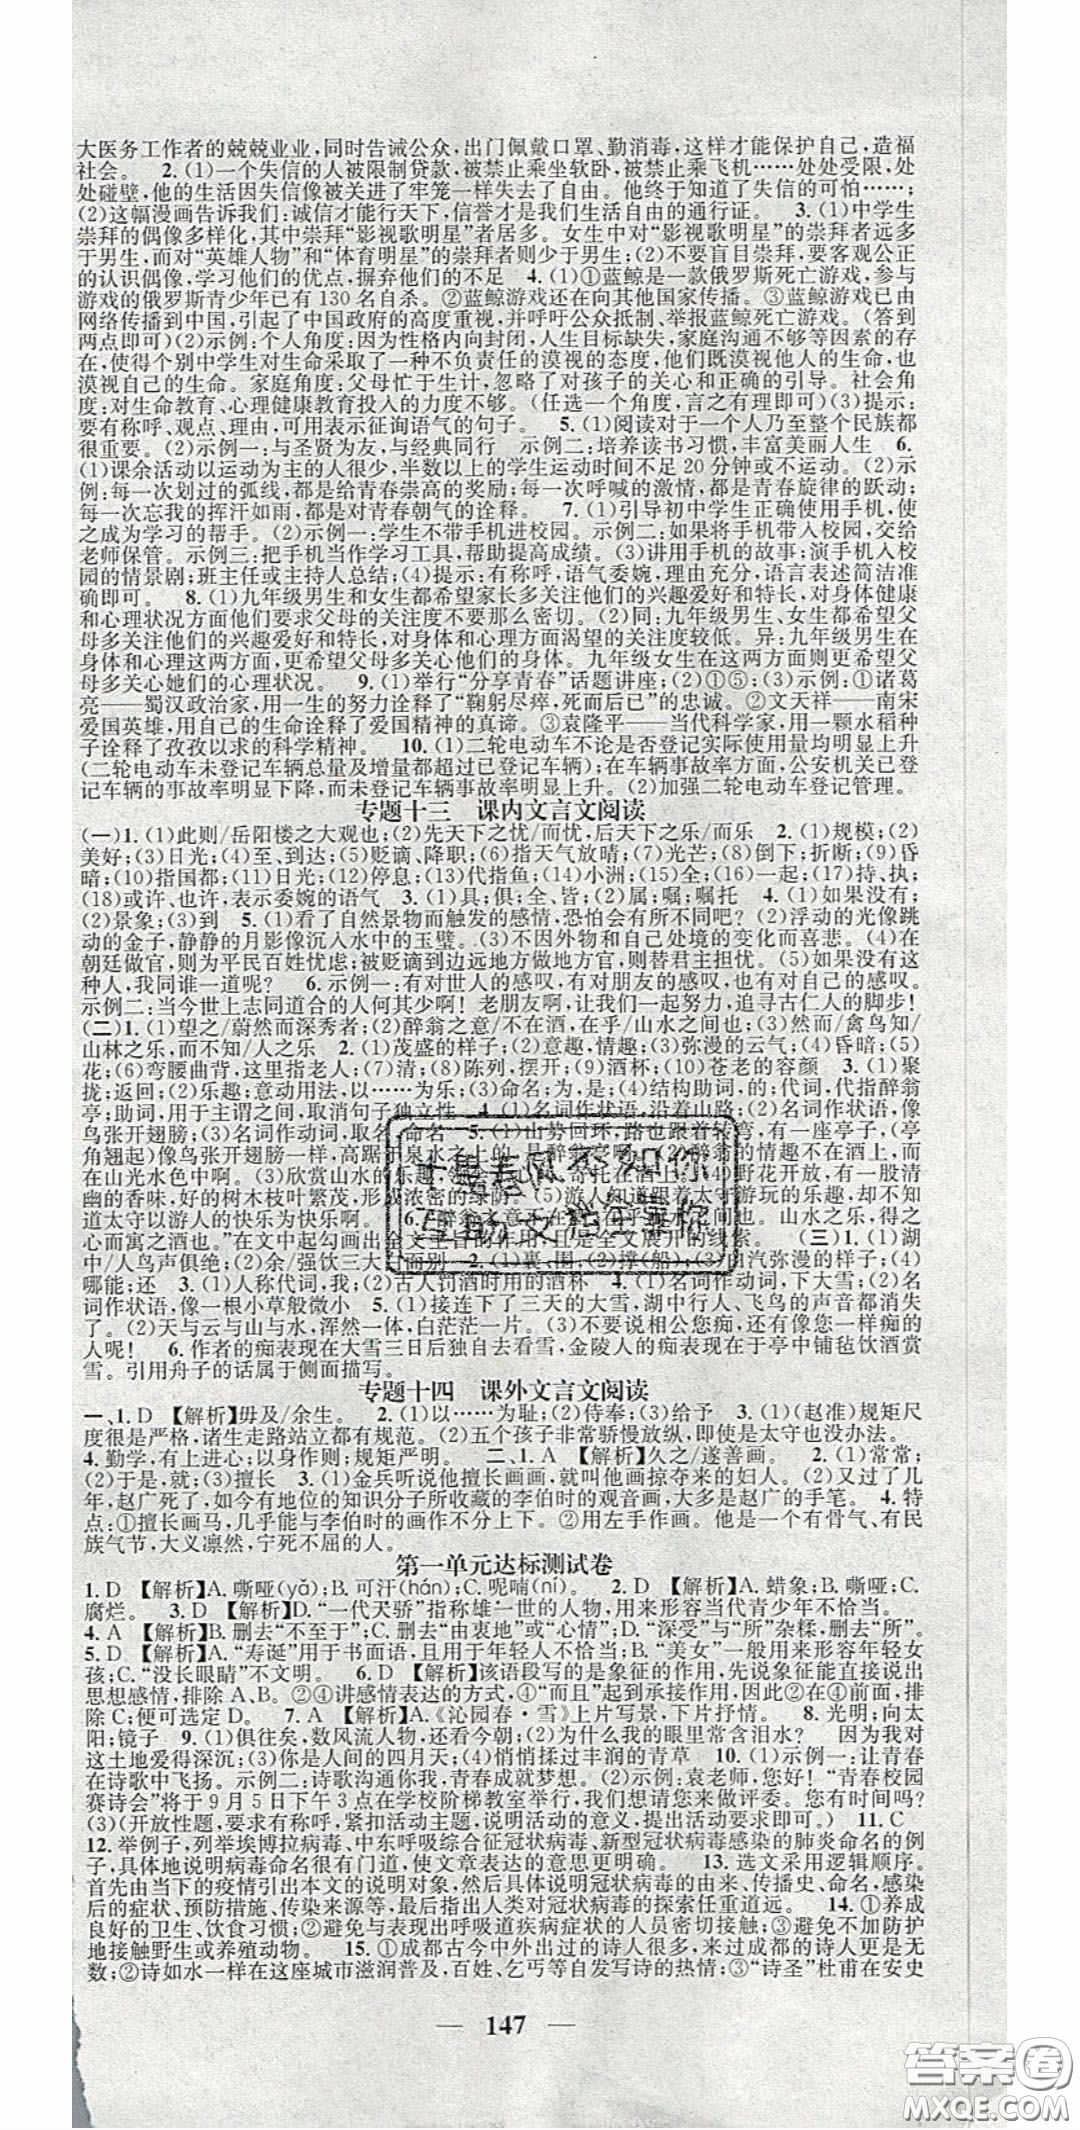 大医务工作者的兢兢业业,同时告诫公众,出门佩戴口罩、勤消毒,这样才能保护自己,造福
社会。 2.(1)一个失信的人被限制贷款,被禁止乘坐软卧,被禁止乘飞机……处处受限,处
处碰壁,他的生活因失信像被关进了牢笼一样失去了自由。他终于知道了失信的可怕……;
(2)这幅漫画告诉我们:诚信才能行天下,信誉才是我们生活自由的通行证。 3.(1)中学生
崇拜的偶像多样化,其中崇拜“影视歌明星”者居多。女生中对“影视歌明星”的崇拜者远多
于男生,而对“英雄人物”和“体育明星”的崇拜者则少于男生;(2)不要盲目崇拜,要客观公正
的认识偶像,学习他们的优点,摒弃他们的不足 4.(1)①蓝鲸是一款俄罗斯死亡游戏,参与
游戏的俄罗斯青少年已有 130 名自杀。②蓝鲸游戏还在向其他国家传播。③蓝鲸游戏已由
网络传播到中国,引起了中国政府的高度重视,并呼吁公众抵制、举报蓝鲸死亡游戏。(答到
两点即可)(2)示例:个人角度:因为性格内向封闭,人生目标缺失,家庭沟通不够等因素的影
响,使得个别中学生对生命采取了一种不负责任的漠视的态度,他们既漠视他人的生命,也
漠视自己的生命。家庭角度:父母忙于生计,忽略了对孩子的关心和正确的引导。社会角
度:对生命教育、心理健康教育投入的力度不够。(任选一个角度,言之有理即可)(3)提示:
要有称呼、观点、理由,可用表示征询语气的句子。 5.(1)阅读对于一个人乃至整个民族都
很重要。(2)示例一:与圣贤为友,与经典同行 示例二:培养读书习惯,丰富美丽人生 6.
(1)课余活动以运动为主的人很少,半数以上的学生运动时间不足 20 分钟或不运动。(2)示
例:每一次划过的弧线,都是给青春崇高的奖励;每一次呼喊的激情,都是青春旋律的跃动;
每一次忘我的挥汗如雨,都是对青春朝气的诠释。 7.(1)引导初中学生正确使用手机,使
之成为学习的帮手。(2)示例一:学生不带手机进校园。示例二:如果将手机带入校园,交给
老师保管。示例三:把手机当作学习工具,帮助提高成绩。(3)讲用手机的故事;演手机入校
园的情景剧;班主任或主持人总结;(4)提示:有称呼,语气委婉,理由充分,语言表述简洁准
确即可。 8.(1)九年级男生和女生都希望家长多关注他们的兴趣爱好和特长,对身体健康
和心理状况方面他们要求父母的关注程度不要那么密切。(2)同:九年级男生、女生都希望父
母多关注他们的兴趣爱好和特长,对身体和心理方面渴望的关注度较低。异:九年级男生在
身体和心理这两方面,更希望父母多关心他们的身体。九年级女生在这两方面则更希望父
母多关心她们的心理状况。 9.(1)举行“分享青春”话题讲座;(2)①⑤;(3)示例:①诸葛
亮——蜀汉政治家,用一生的努力诠释了“鞠躬尽瘁,死而后已”的忠诚。②文天祥——南宋
爱国英雄,用自己的生命诠释了爱国精神的真谛。③袁隆平——当代科学家,用一颗水稻种
子诠释了孜孜以求的科学精神。 10.(1)二轮电动车不论是否登记实际使用量均明显上升
(二轮电动车未登记车辆总量及增量都超过已登记车辆);在车辆事故率方面,公安机关已登
记车辆的事故率明显下降了,而未登记车辆事故率明显上升。(2)加强二轮电动车登记管理。
专题十三 课内文言文阅读
(一)1.(1)此则/岳阳楼之大观也;(2)先天下之忧/而忧,后天下之乐/而乐 2.(1)规模;(2)
美好;(3)日光;(4)至、到达;(5)贬谪、降职;(6)指天气放晴;(7)光芒;(8)倒下;折断;(9)昏
暗;(10)指国都;(11)日光;(12)停息;(13)代指鱼;(14)小洲;(15)全;(16)一起;(17)持、执;
(18)或许、也许,表示委婉的语气 3.(1)具;俱;全、皆;(2)属;嘱;嘱托 4.(1)如果没有;
(2)景象;(3)到 5.(1)看了自然景物而触发的感情,恐怕会有所不同吧?(2)浮动的光像跳
动的金子,静静的月影像沉入水中的玉璧。(3)不因外物和自己处境的变化而喜悲。(4)在
朝廷做官,则为平民百姓忧虑;被贬到边远地方做政府官,则替君主担忧。(5)如果没有这
种人,我同谁一道呢? 6.示例一:有对世人的感叹,有对朋友的感叹,也有对自己的感叹。
示例二:当今世上志同道合的人何其少啊! 老朋友啊,让我们一起努力,追寻古仁人的脚步!
(二)1.(1)望之/蔚然而深秀者;(2)醉翁之意/不在酒,在乎/山水之间也;(3)然而禽鸟知/
山林之乐,而不知/人之乐 2.(1)茂盛的样子;(2)意趣,情趣;(3)弥漫的云气;(4)昏暗;(5)
花;(6)弯腰曲背,这里指老人;(7)清;(8)陈列,摆开;(9)喝醉;(10)苍老的容颜 3.(1)聚
拢;返回;(2)乐趣;意动用法,以……为乐;(3)命名;为;(4)结构助词,的;代词,代指醉翁
亭;助词,用于主谓之间,取消句子独立性 4.(1)名词作状语,沿着山路;(2)名词作状语,像
鸟张开翅膀;(3)名词作动词,取名、命名 5.(1)山势回环,路也跟着转弯,有一座亭子,(亭
角翘起)像鸟张开翅膀一样,高踞于泉水之上的,是醉翁亭啊。(2)醉翁的情趣不在酒上,而
在山光水色中啊。(3)欣赏山水的乐趣,领会在心里,寄托在酒上。(4)野花开放,有一股清
幽的香味,好的树木枝叶繁茂,形成浓密的绿荫。(5)游人知道跟着太守游玩的乐趣,却不
知道太守以游人的快乐为快乐啊。 6.“醉翁之意不在酒,在乎山水之间也。山水之乐,得之
心而寓之酒也。”在文中起勾画出全文主旨的作用,且是全文展开的线索。 (三)1.(1)湖
中/人鸟声俱绝;(2)余/强饮三大白/而别 2.(1)裹、围;(2)撑(船);(3)白汽弥漫的样子;(4)
哪能;还 3.(1)人称代词,我;(2)古人罚酒时用的酒杯 4.(1)名词作动词,下大雪;(2)名
词作状语,像一根小草般微小 5.(1)接连下了三天的大雪,湖中行人、飞鸟的声音都消失
了。(2)天与云与山与水,浑然一体,白茫茫一片。(3)不要说相公您痴,还有像您一样痴的
人呢! 6.作者的痴表现在大雪三日后独自去看雪,金陵人的痴表现在于亭中铺毡饮酒赏
雪。引用舟子的话属于侧面描写。
专题十四 课外文言文阅读
一、1. D 【解析】毋及/余生。 2.(1)以……为耻;(2)侍奉;(3)给予 3.(1)(赵准)规矩尺
度很是严格,诸生走路站立都有规范。(2)五个孩子非常骄慢放纵,即使是太守也没办法。
4. 勤学,有上进心;以身作则;规矩严明。 二、1. A 【解析】久之/遂善画。 2.(1)常常;
(2)于是,就;(3)擅长 3.(1)金兵听说他擅长画画,就叫他画掠夺来的妇人。(2)又过了几
年,赵广死了,如今有地位的知识分子所收藏的李伯时的观音画,大多是赵广的手笔。 4. 特
点:①擅长画马,几乎能与李伯时的画作不分上下。②用左手作画。他是一个有骨气、有民
族气节,大义凛然,宁死不屈的人。
第一单元达标测试卷
1. D 【解析】A. 嘶哑(yǎ);B. 可汗(hán);C. 呢喃(ní)。 2. D 【解析】A. 蜡象;B. 嘶哑;C.
腐烂。 3. D 【解析】D. “一代天骄”指称雄一世的人物,用来形容当代青少年不恰当。
4. A 【解析】B. 删去“不至于”;C. 删去“由衷地”或“心情”;D. “深受”与“所”杂糅,删去“所”。
5. D 【解析】A. “寿诞”用于书面语,用于年轻人不恰当;B. “美女”一般用来形容年轻女
孩;C. “没长眼睛”不文明。 6. D 【解析】该语段写的是象征的作用,先说象征能直接说出
思想感情,排除 A、B。②④讲感情表达的方式,④“而且”起到承接的作用,因此②在④前面,排
除 C;便可选定 D。 7. A 【解析】A.《沁园春·雪》上片写景,下片抒情。 8. 光明;向太
阳;镜子 9.(1)俱往矣,数风流人物,还看今朝;(2)为什么我的眼里常含泪水? 因为我对
这土地爱得深沉;(3)你是人间的四月天;(4)悄悄揉过丰润的青草 10.(1)示例一:让青春
在诗歌中飞扬。示例二:诗歌沟通你我,青春成就梦想。(2)示例:袁老师,您好!“青春校园
赛诗会”将于 9 月 5 日下午 3 点在学校阶梯教室举行,我们想邀请您来做评委。您有时间吗?
(3)(开放性题,要求:紧扣活动主题,说明活动的意义,提出要求即可。) 11. C
12. 举例子,列举埃博拉病毒、中东呼吸综合征冠状病毒、新型冠状病毒感染的肺炎命名的例
子,具体地说明病毒命名很有门道,使文章表达的意思更明确。 13. 选文采用逻辑顺序。
首先由当下的疫情引出本文的说明对象,然后具体说明冠状病毒的由来、传播史、命名,感染
后的症状、预防措施、传染来源等,最后指出人类对冠状病毒的探索任重道远。 14. ①养成
良好的卫生、饮食习惯;②避免与表现出呼吸道疾病症状的人员密切接触;③避免不加防护
地接触野生或养殖动物。 15. ①成都古今中外出过的诗人很多,来过成都的诗人更是无
数;②诗如水一样在这座城市滋润普及,百姓、乞丐等自发写诗的热情;③“诗圣”杜甫在安史
— 147 —
答案卷
MXQE.COM